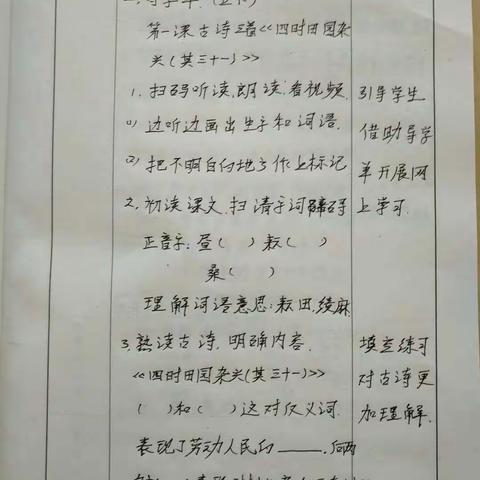 第一课古诗三首《四时田园杂
兴(其三十一)》
1. 扫码听读,朗读,看视频.
引导学生
(1) 边听边画出生字和词语.
借助导学
(2) 把不明白的地方作上标记
单开展网
2. 初读课文,扫清字词障碍
上学习.
正音字:昼( ) 耘( )
桑( )
理解词语意思:耘田,绩麻
3. 熟读古诗,明确内容.
填空练习
《四时田园杂兴(其三十一)》
对古诗更
( )和( )这对反义词.
加理解.
表现了劳动人民的____.后两